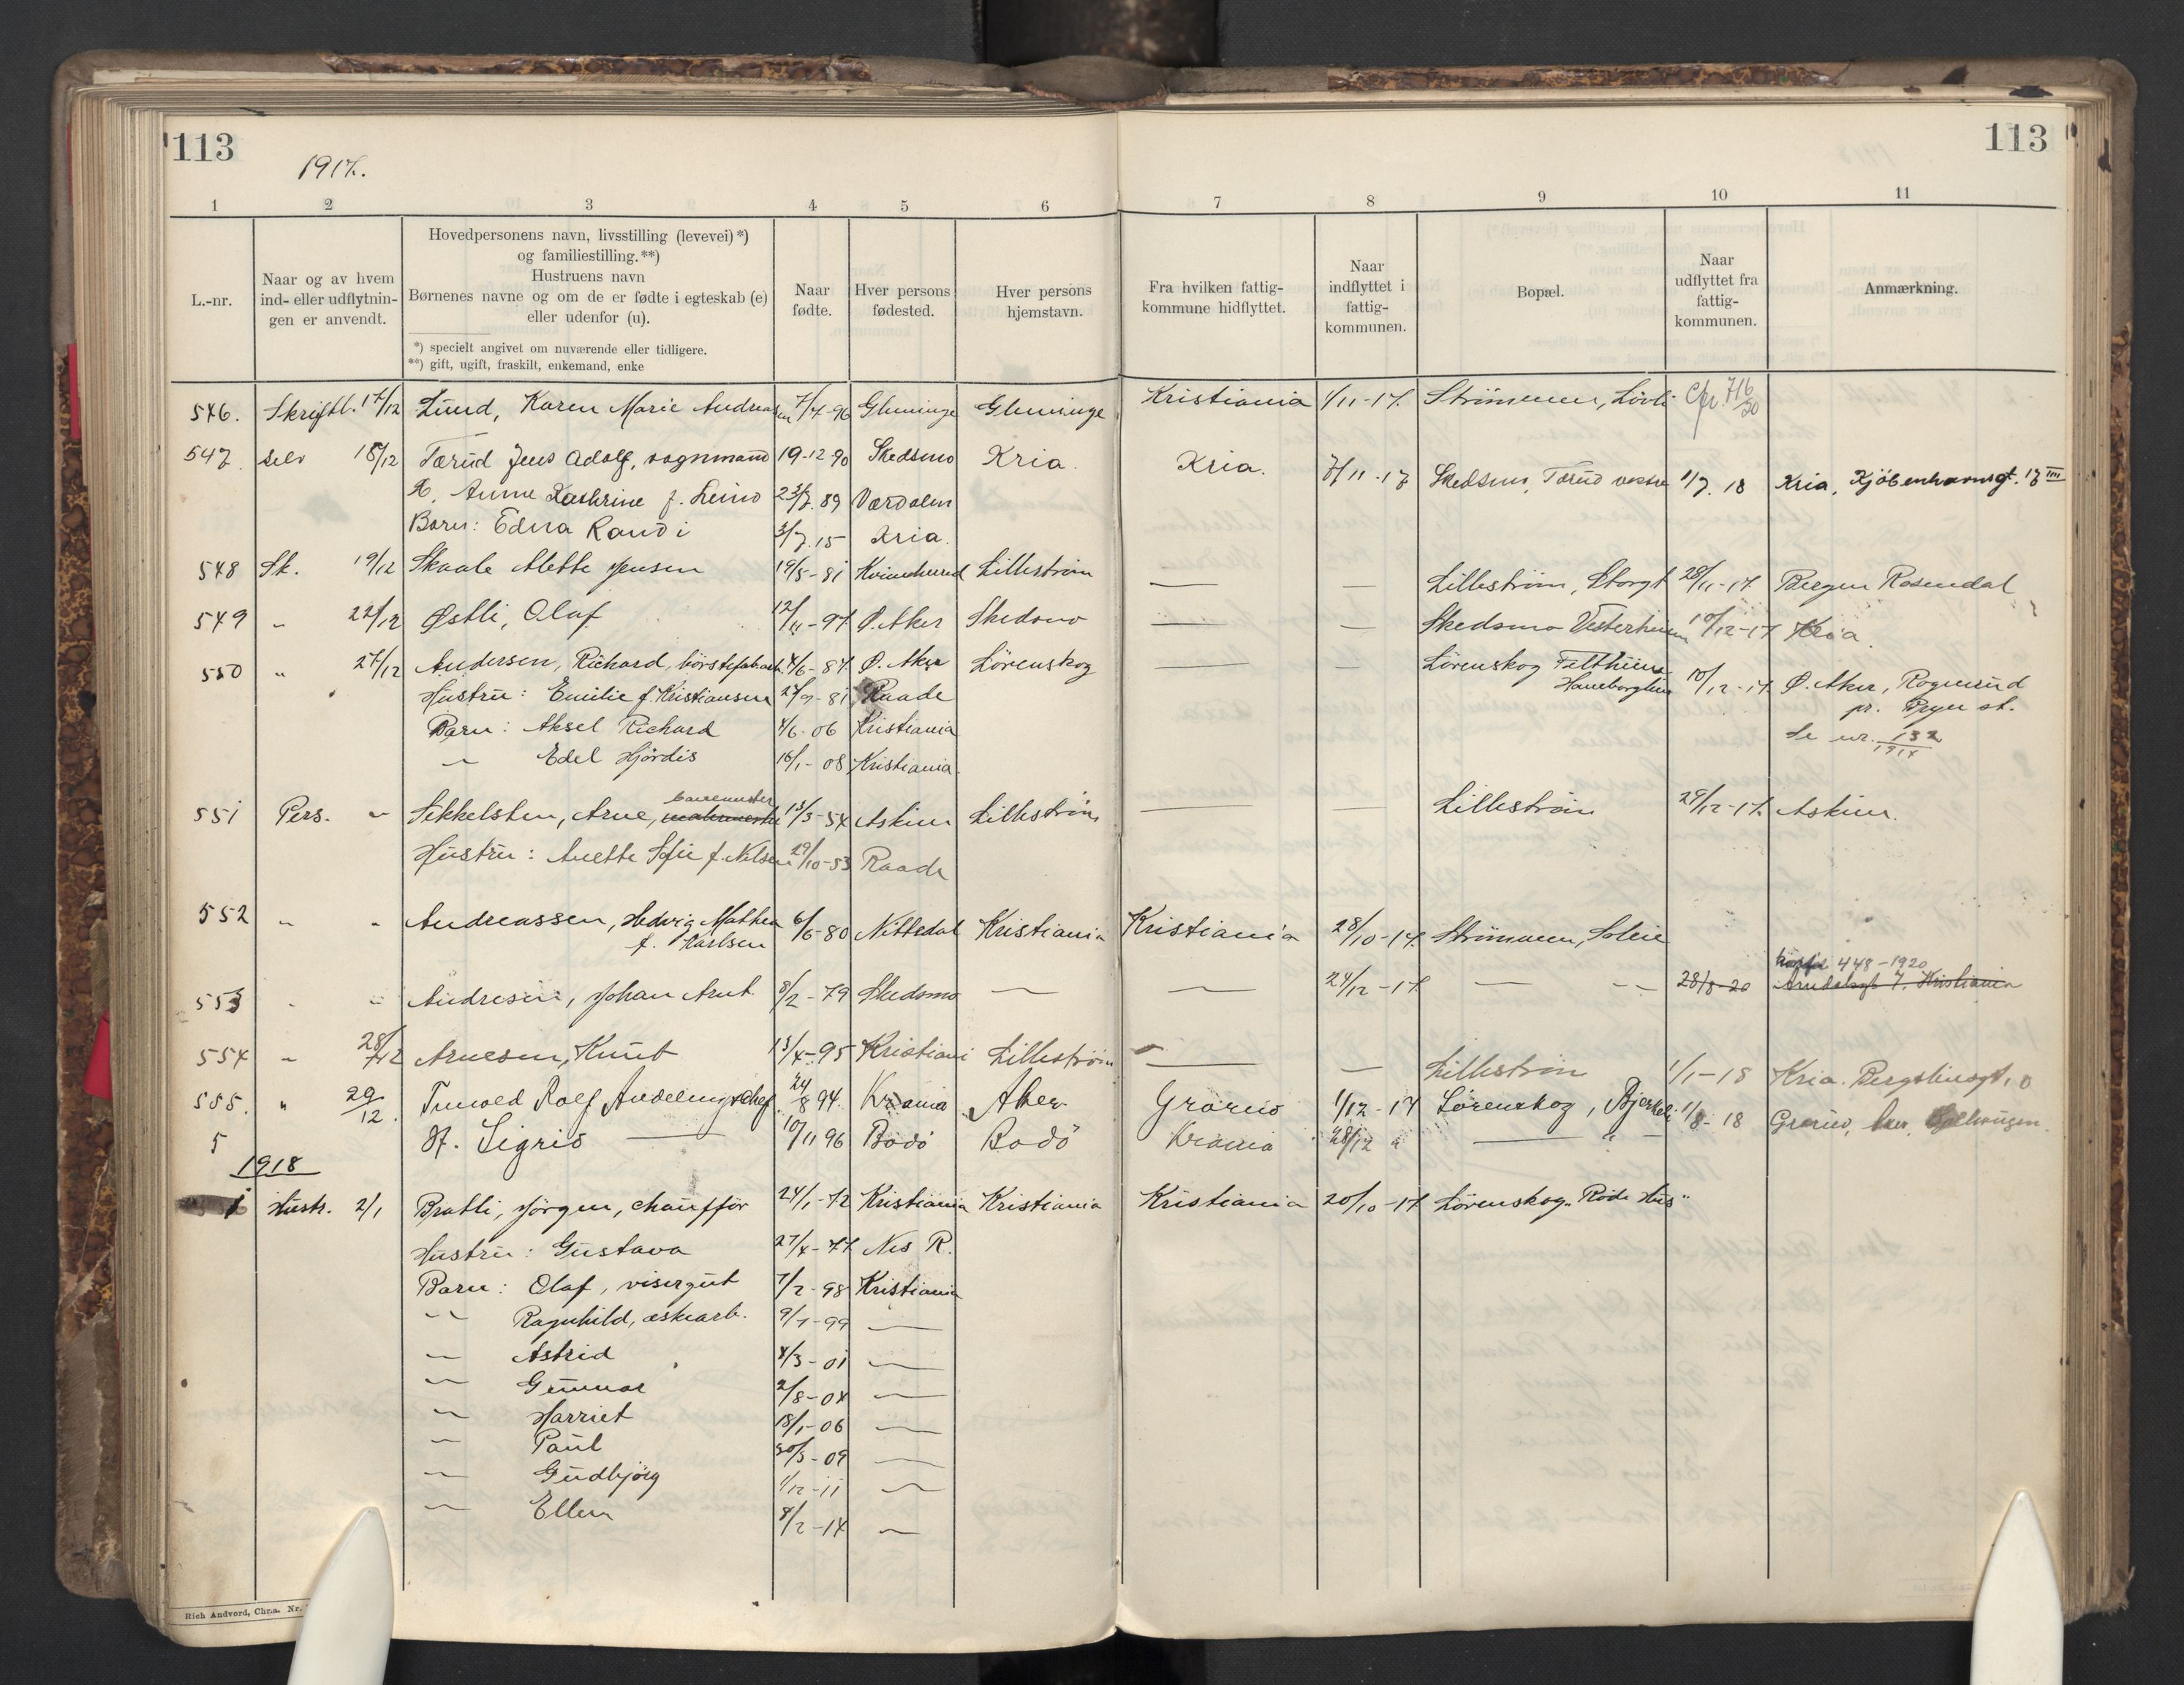 113 113
1917.
1 2 3 4 5 6 7 8 9 10 11
L.-nr.
Naar og av hvem
ind- eller udflytnin-
gen er anvendt.
Hovedpersonens navn, livsstilling (levevei) *)
og familiestilling. **)
Hustruens navn
Børnenes navne og om de er fødte i egteskab (e)
eller udenfor (u).
*) specielt angivet om nuværende eller tidligere.
**) gift, ugift, fraskilt, enkemand, enke
Naar
fødte.
Hver persons
fødested.
Hver persons
hjemstavn.
Fra hvilken fattig-
kommune hidflyttet.
Naar
indflyttet i
fattig-
kommunen.
Bopæl.
Naar
udflyttet fra
fattig-
kommunen.
Anmærkning.
546. Skriftl. 17/12 Lund, Karen Marie Andreasen 7/4-96 Glemminge Glemminge Kristiania 1/11-17. Strömmen, Lövli Cfr. 716/20
547 selv 18/12 Tærud Jens Adolf, vognmand 19-12-90 Skedsmo Kria. Kria. 7/11-17 Skedsmo, Tærud vestre 1/7.18 Kria, Kjöbenhavnsgt. 17 III
H. Anne Kathrine f. Leino 23/7.89 Værdalen
Barn: Edna Randi 3/7.15 Kria.
548 Sk. 19/12 Skaale Alette Jensen 19/5-81 Kvinnherred Lilleström — — Lilleström, Storgt 28/11-17 Bergen Rosendal
549 " 22/12 Østli, Olaf 12/11-97 Ø. Aker Skedsmo — — Skedsmo Vesterheim 10/12-17 Kria.
550 " 27/12 Andersen, Richard, börstefabrarb. 4/6-84 Ø. Aker Lörenskog — — Lörenskog Feltheim
Haneborglien 10/12-17 Ø. Aker, Rognerud
Hustru: Emilie f. Kristiansen 27/9-81 Raade pr. Bryn st.
Barn: Aksel Richard 4/6-06 Kristiania Se nr. 132/1917
" Edel Hjördis 16/1-08 Kristiania
551 Pers. " Sikkelsten, Arne, 13/3-54 Askim Lilleström — — Lilleström 29/12-17 Askim.
Hustru: Anette Sofie f. Nilsen 29/10-53 Raade
552 " " Andreassen, Hedvig Mathea 6/6-80 Nittedal Kristiania Kristiania 28/10-17. Strömmen, Solein
f. Karlsen
448-1920
553 " " Andresen, Johan Arnt. 8/2-79 Skedsmo — — 24/12-17 — " 28/8-20 Arendalsgt 7, Kristiania
554 " 28/12 Arnesen, Knut 13/4-95 Kristiania Lilleström — — Lilleström 1/1-18 Kria. Bergsliensgt.
555. " 29/12. Rolf 24/8 94. Kr.ania Aker Grorud 1/12-17 Lörenskog, Bjerkeli 1/8-18 Grorud,
5 H. Sigrid — 10/11 96 Bodö Bodö Kr.ania 28/12 " — "
1918
1 Hustr. 2/1 Bratli, Jörgen, chaufför 24/1-72 Kristiania Kristiania Kristiania 20/10-17 Lörenskog "Röde Hus"
Hustru: Gustava 27/4-77 Nes R.
Barn: Olaf, visergut 7/2-98 Kristiania
" Ragnhild, æskearb. 9/1-99 —
" Astrid 4/3-01 —
" Gunnar 2/8-04 —
" Harriet 18/1-06 —
" Paul 30/3-09 —
" Gudbjörg 1/12-11 —
" Ellen 8/2-14 —
Rich Andvord, Chr.a. Nr.